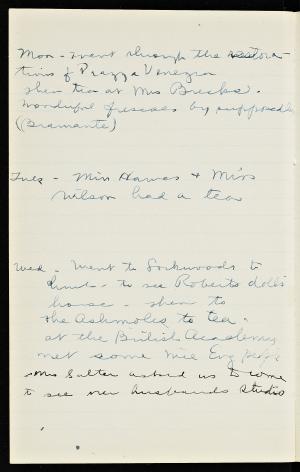 Mon - went through the restora-
tions of Piazza Venezia
then tea at Mrs Breeks.
Wonderful frescoes by supposedly
(Bramante)
Tues - Miss Hawes & Miss
Wilson had a tea
Wed - Went to Lockwoods to
lunch - to see Roberts dolls
house - then to
the Ashmoles to tea -
at the British Academy
met some nice Eng people
Mrs asked us to come
to see her husbands studio